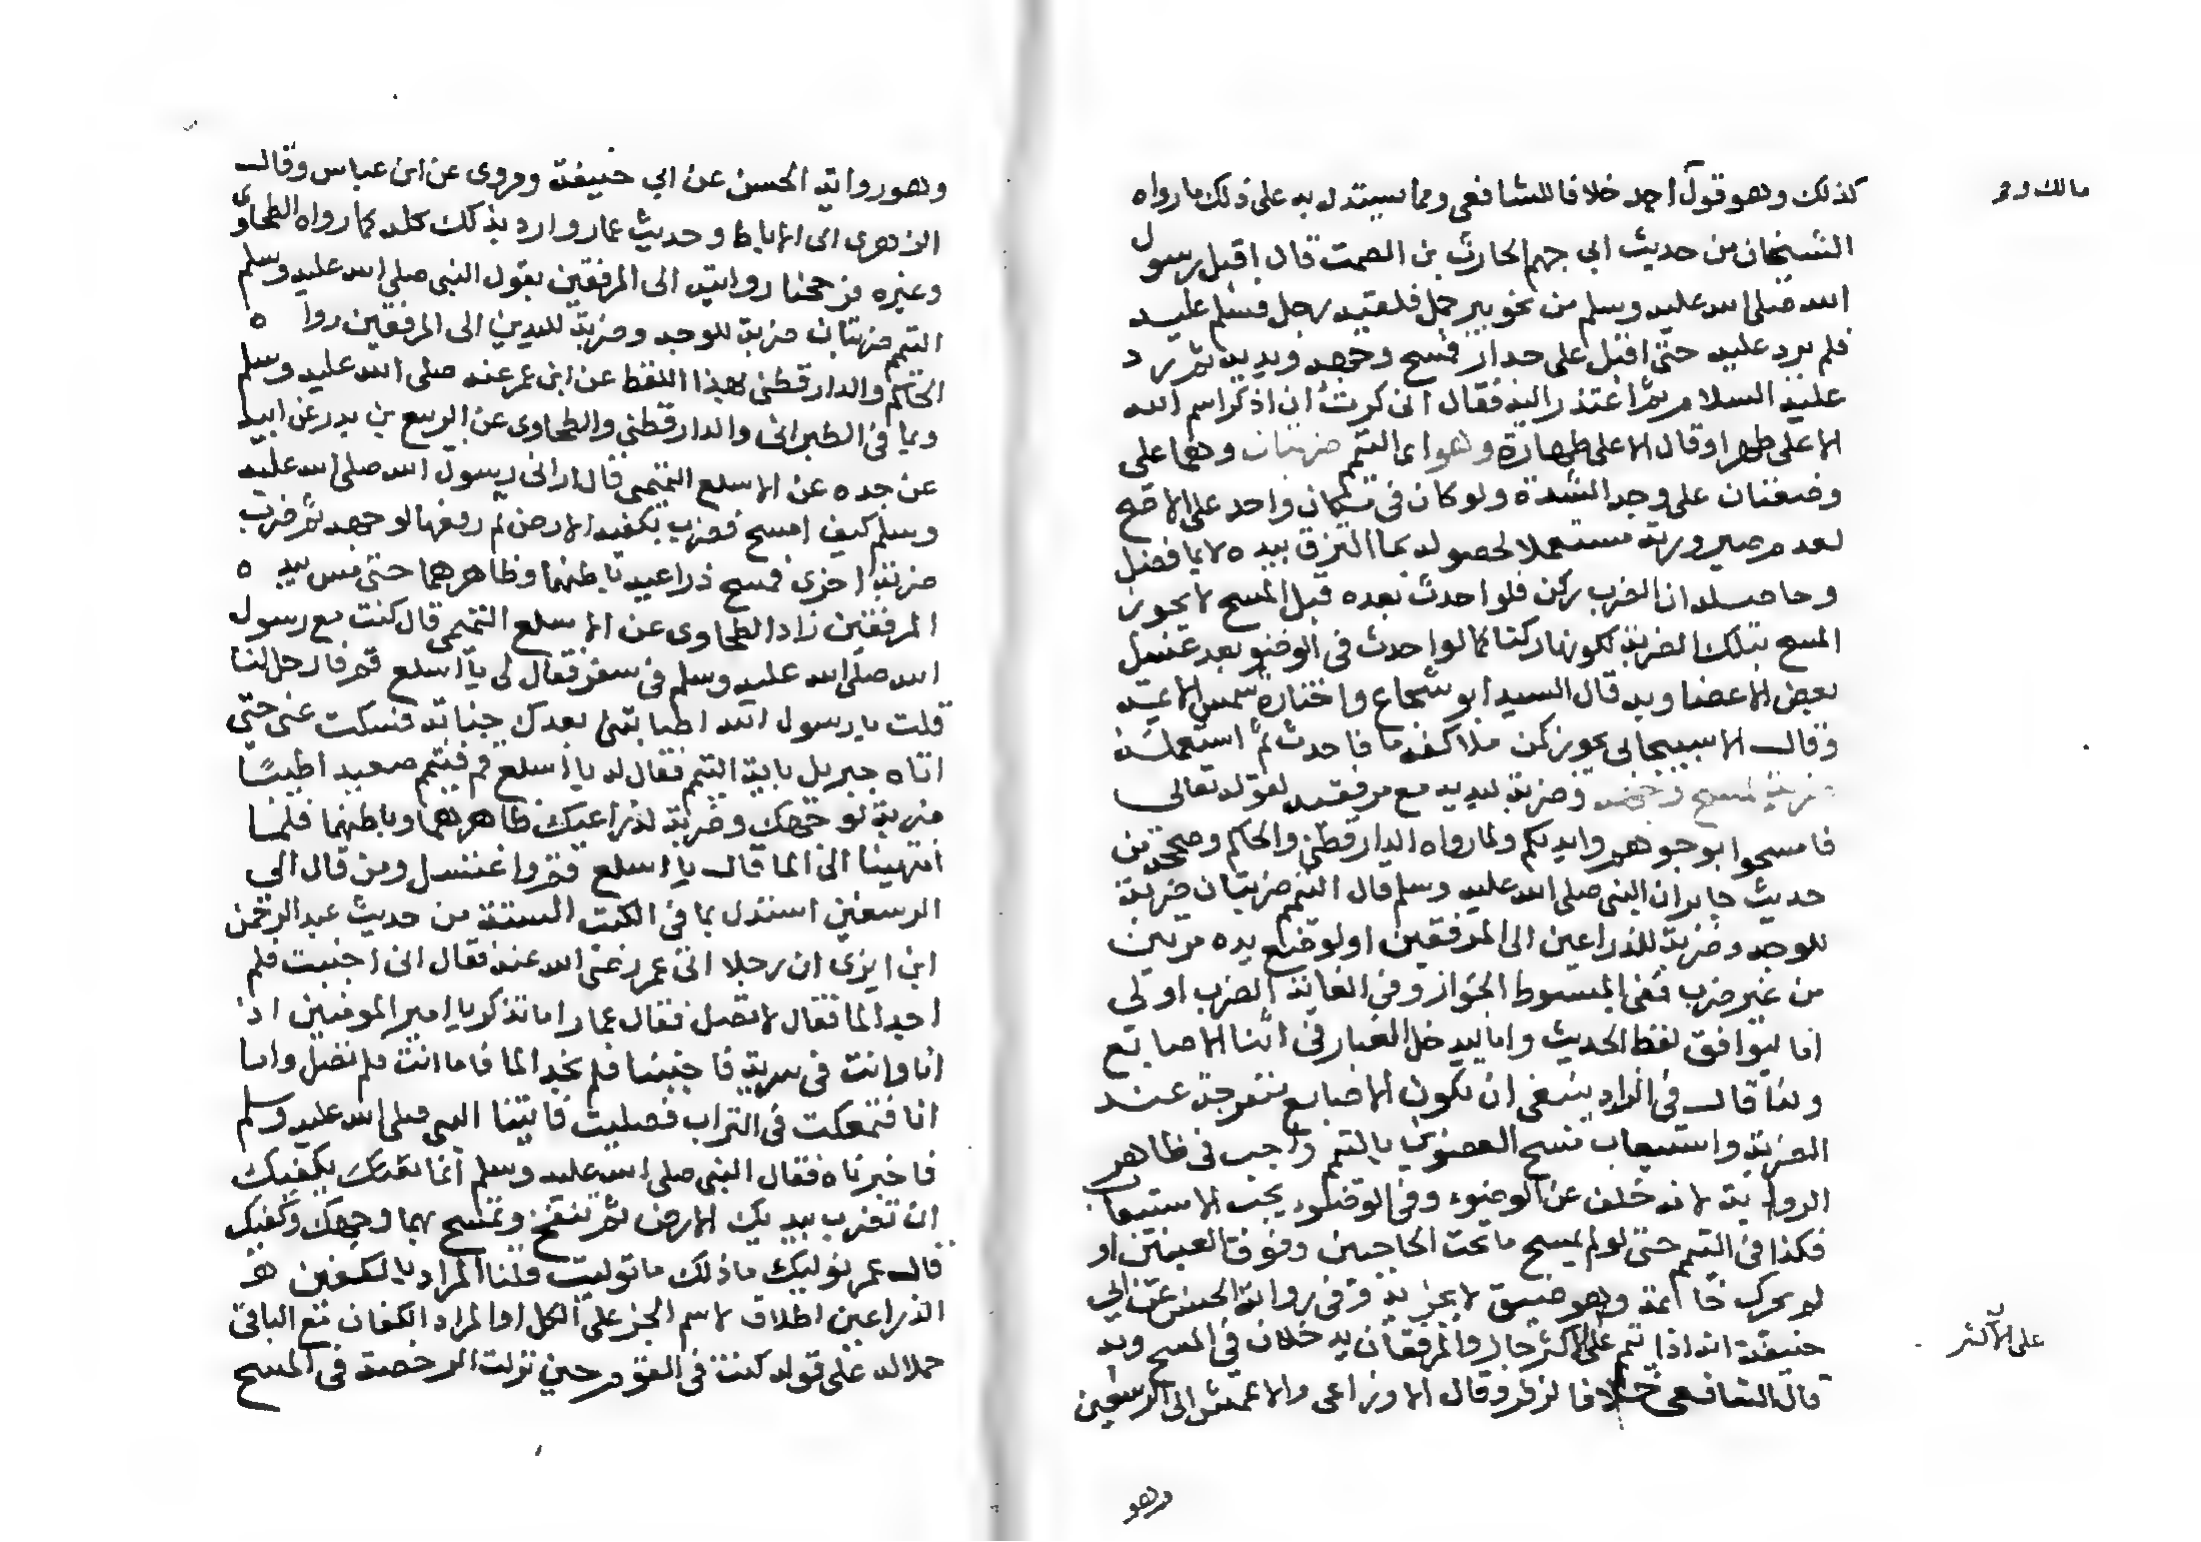 كذلك وهو قول احمد خلافا للشافعي ومما يستدل به على ذلك ما رواه
مالك و
الشيخان من حديث ابي جهم الحارث بن الصمت قال اقبل رسول
الله صلى الله عليه وسلم من نحو بير جمل فلقيه رجل فسلم عليه
فلم يرد عليه حتى اقبل على جدار فمسح وجهه ويديه ثم رد
عليه السلام ثم اعتذر اليه فقال اني كرهت ان اذكر اسم الله
الا على طهر او قال الا على طهارة وهو اى التيمم ضربتان وهما على
وضعتان على وجه الشدة ولو كان في مكان واحد على الاصح
لعدم صيرورته مستعملا لحصوله بما التزق بيده لا بما فضل
وحاصله ان الضرب ركن فلو احدث بعده قبل المسح لا يجوز
المسح بتلك الضربة لكونها ركنا كما لو احدث في الوضو بعد غسل
بعض الاعضا وبه قال السيد ابو شجاع واختاره شمس الايمة
وقال الاسبيجابي يجوز كمن ملا كفه ما فاحدث ثم استعمله
ضربة لمسح وجهه وضربة ليديه مع مرفقيه لقوله تعالى
فامسحوا بوجوهكم وايديكم ولما رواه الدارقطني والحاكم وصححه من
حديث جابر ان النبي صلى الله عليه وسلم قال التيمم ضربتان ضربة
للوجه وضربة للذراعين الى المرفقين او لو وضع يده مرتين
من غير ضرب ففي المبسوط الجواز وفي الغاية الضرب اولى
اما ليوافق لفظ الحديث واما ليدخل الغبار في اثنا الاصابع
ولذا قال في الزاد ينبغي ان تكون الاصابع منفرجة عند
الضربة واستيعاب مسح العضوين بالتيمم واجب في ظاهر
الرواية لانه خلف عن الوضوء وفي الوضوء يجب الاستيعاب
فكذا في التيمم حتى لو لم يمسح ما تحت الحاجبين وفوق العينين او
لم يحرك خاتمه وهو ضيق لا يجزيه وفي رواية الحسن عن ابي
حنيفة انه اذا تيمم على الاكثر جاز والمرفقان يدخلان في المسح وبه
على الاكثر
قال الشافعي خلافا لزفر وقال الاوزاعي والاعمش الى الرسغين
وهو
وهو رواية الحسن عن ابي حنيفة وروي عن ابن عباس وقال
الزهري الى الاباط وحديث عمار وارد بذلك كله كما رواه الطحاوي
وغيره فرجحنا رواية الى المرفقين بقول النبي صلى الله عليه وسلم
التيمم ضربتان ضربة للوجه وضربة لليدين الى المرفقين رواه
الحاكم والدارقطني بهذا اللفظ عن ابن عمر عنه صلى الله عليه وسلم
وبما في الطبراني والدارقطني والطحاوي عن الربيع بن بدر عن ابيه
عن جده عن الاسلع التميمي قال اراني رسول الله صلى الله عليه
وسلم كيف امسح فضرب بكفيه الارض ثم رفعهما لوجهه ثم ضرب
ضربة اخرى فمسح ذراعيه باطنهما وظاهرهما حتى مس بيديه
المرفقين زاد الطحاوي عن الاسلع التميمي قال كنت مع رسول
الله صلى الله عليه وسلم في سفر فقال لي يا اسلع قم فارحل لنا
قلت يا رسول الله اصابتني بعدك جنابة فسكت عني حتى
اتاه جبريل باية التيمم فقال له يا اسلع قم فتيمم صعيدا طيبا
ضربة لوجهك وضربة لذراعيك ظاهرهما وباطنهما فلما
انتهينا الى الما قال يا اسلع قم واغتسل ومن قال الى
الرسغين استدل بما في الكتب الستة من حديث عبد الرحمن
ابن ابزى ان رجلا اتى عمر رضي الله عنه فقال اني اجنبت فلم
اجد الما فقال لا تصل فقال عمار اما تذكر يا امير المومنين اذ
انا وانت في سرية فاجنبنا فلم نجد الما فاما انت فلم تصل واما
انا فتمعكت في التراب فصليت فاتينا النبي صلى الله عليه وسلم
فاخبرناه فقال النبي صلى الله عليه وسلم انما يكفيك
ان تضرب بيديك الارض ثم تنفخ وتمسح بهما وجهك وكفيك
قال عمر نوليك ما ذلك ما توليت قلنا المراد بالكفين هو
الذراعين اطلاق لاسم الجز على الكل او المراد الكفان مع الباقي
حملا له على قوله كنت في القوم حين نزلت الرخصة في المسح